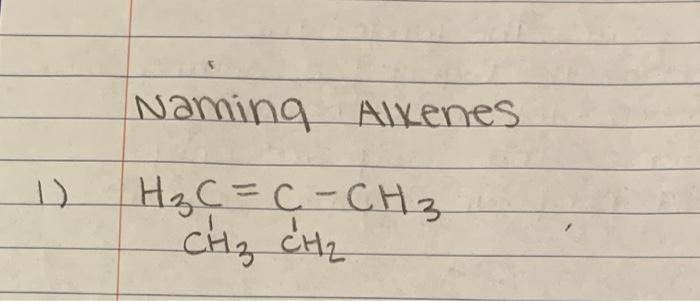 Naming Alkenes
1) H₃C = C - CH₃
CH₃ CH₂